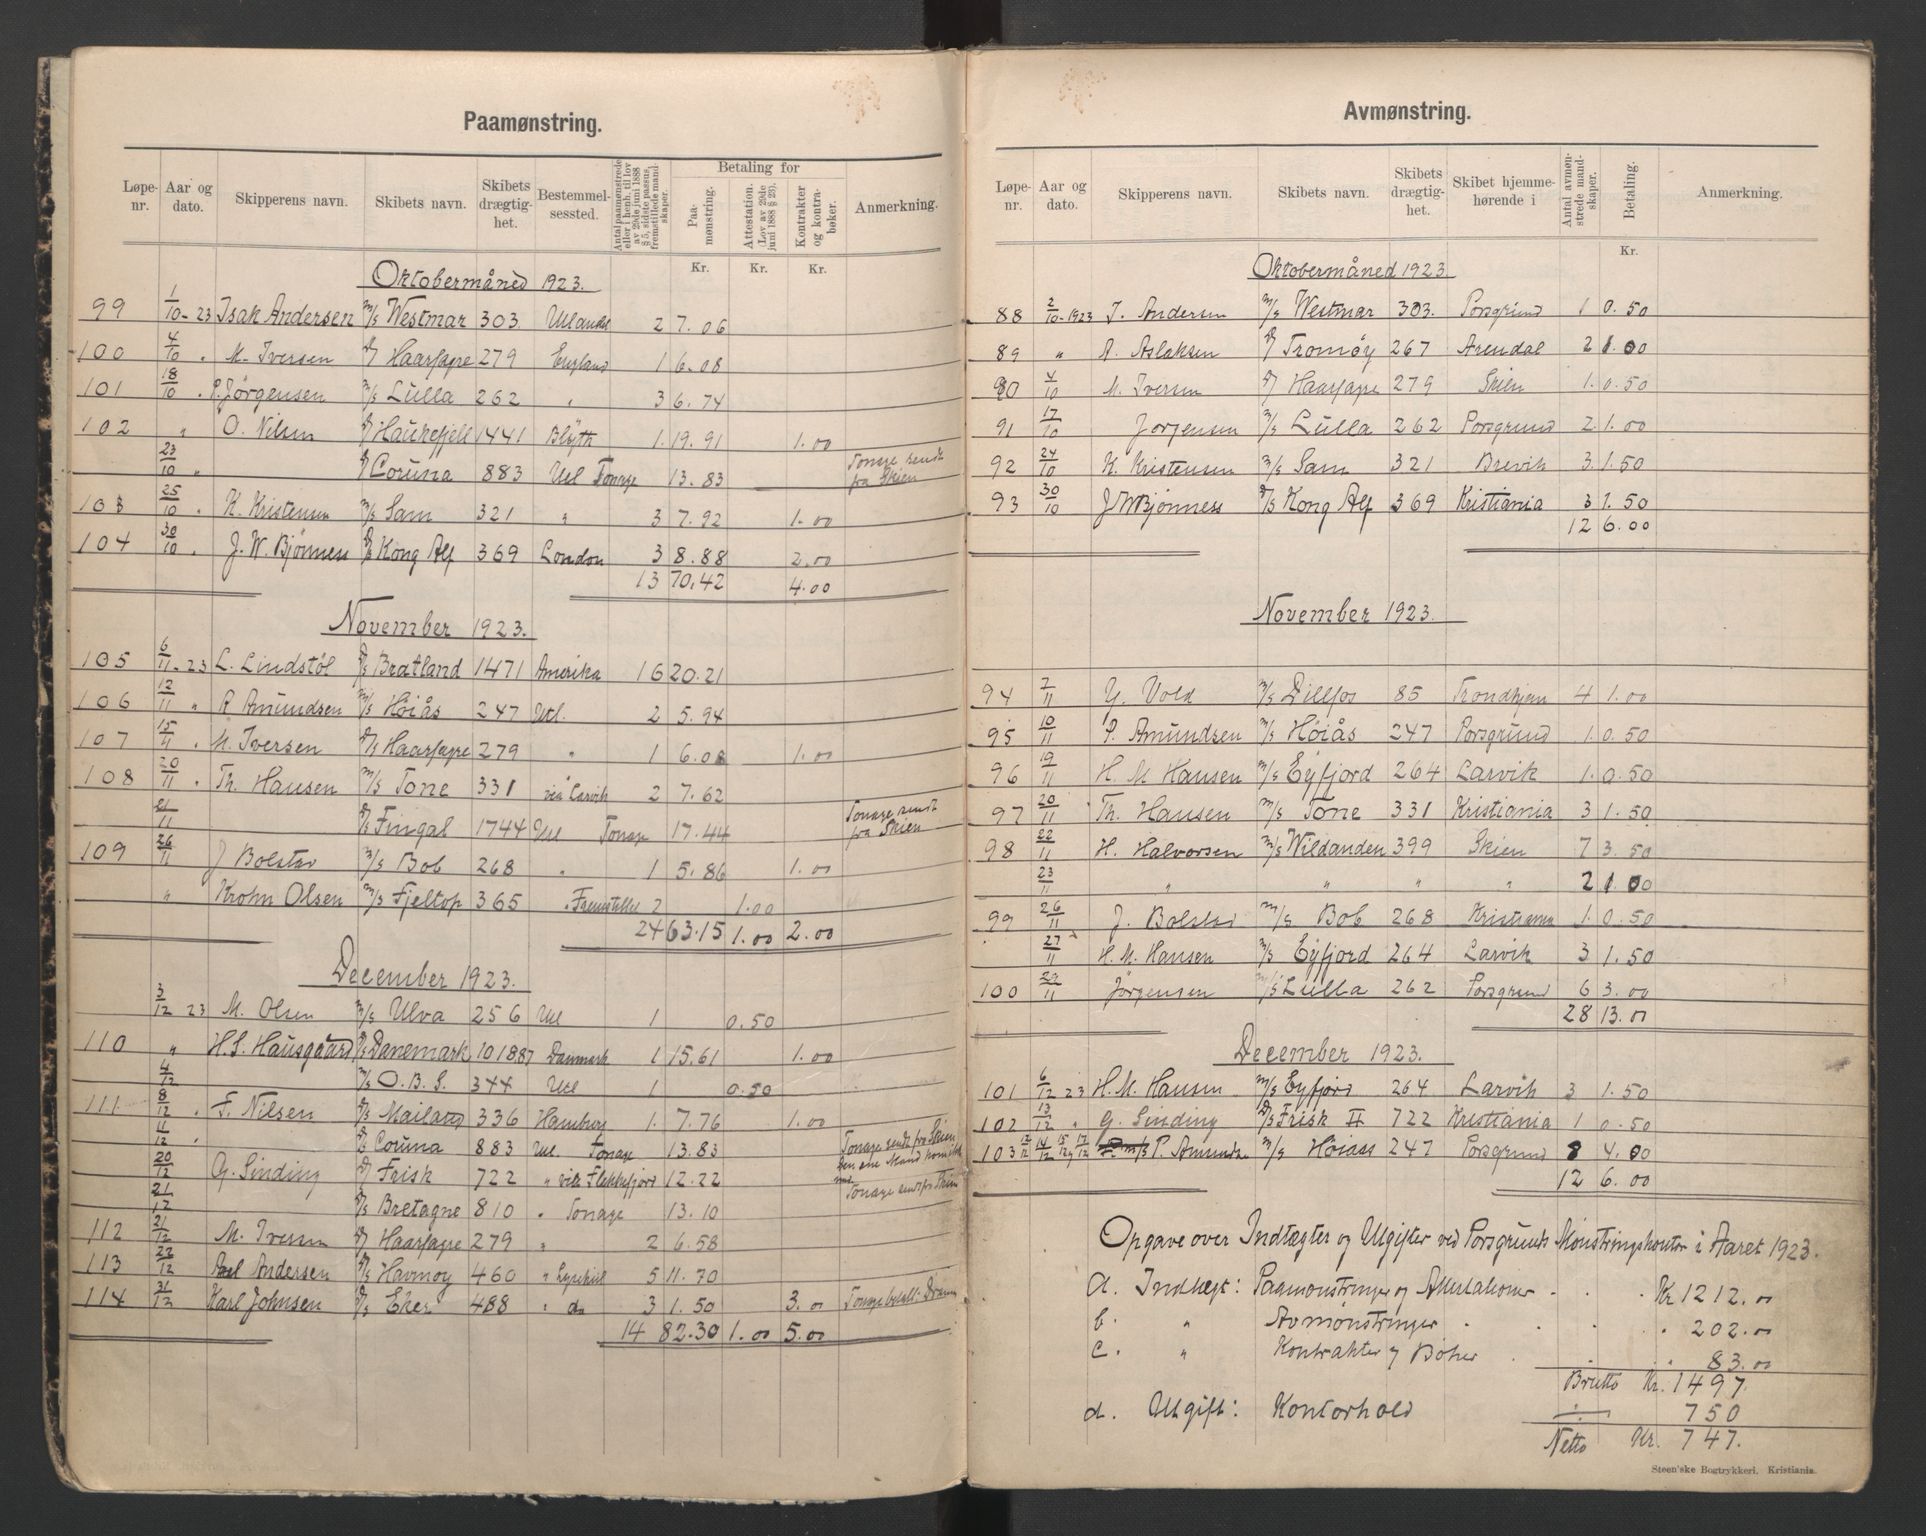 Paamønstring.
Løpe-nr. Aar og dato. Skipperens navn. Skibets navn. Skibets drægtig-het. Bestemmel-sessted. Antal paamønstrede eller i henh. til lov av 29de juni 1888 § 5, sidste passus, fremstillede mand-skaper. Betaling for Paa-mønstring. Attestation. (Lov av 29de juni 1888 § 23). Kontrakter og kontra-bøker. Anmerkning.
Kr. Kr. Kr.
Oktobermåned 1923.
99 1/10-23 Isak Andersen m/s Westmar 303. Utlandet 2 7.06
100 4/10 " M. Iversen d/s Haarfagre 279 England 1 6.08
101 18/10 " P. Jørgensen m/s Lulla 262 " 3 6.74
102 " O. Nilsen d/s Haukefjell 1441 Blyth 1. 19.91 1.00
23/10 " d/s Coruna 883 Utl Tonage 13.83 Tonage sendt fra Skien
103 25/10 " K. Kristensen m/s Sam 321 " 3 7.92 1.00
104 30/10 " J. W. Bjønness d/s Kong Alf 369 London 3 8.88 2.00
13 70.42 4.00
November 1923.
105 6/11-23 L. Lindstøl d/s Bratland 1471 Amerika 16 20.21
106 12/11 " P. Amundsen m/s Høiås 247 Utl. 2 5.94
107 15/11 " M. Iversen d/s Haarfagre 279 " 1 6.08 1.00
108 20/11 " Th. Hansen m/s Tone 331 via Larvik 2 7.62
21/11 d/s Fingal 1744 Utl Tonage 17.44 Tonage sendt fra Skien
109 26/11 J Bolstad m/s Bob 268 " 1 5.86 1.00
" Krohn Olsen m/s Fjeltop 365 " Fremstillet 2 1.00
24 63.15 1.00 2.00
December 1923.
3/12 23 M. Olsen m/s Ulva 256 Utl 1 0.50
110 " H.S. Hausgaard d/s Danemark 1887 Danmark 1 15.61 1.00
4/12 m/s O.B.S. 344 Utl 1 0.50
111 8/12 " F. Nilsen d/s Mailand 336 Hamburg 1. 7.76 1.00
11/12 " d/s Coruna 883 Utl. Tonage 13.83 Tonage sendt fra Skien
20/12 G. Sinding d/s Frisk 722 " via Flekkefjord 12.22
21/12 d/s Bretagne 810 " Tonage 13.10 Tonage sendt fra Skien
112 21/12 M. Iversen d/s Haarfagre 279 " 2 6.58
113 22/12 Andersen d/s Havmoy 460 " Lysekil 5 11.70
114 31/12 Karl Johnsen d/s Eker 488 " do 3 1.50 3.00 Tonage betalt i Dramm
14 82.30 1.00 5.00
Avmønstring.
Løpe-nr. Aar og dato. Skipperens navn. Skibets navn. Skibets drægtig-het. Skibet hjemme-hørende i Antal avmøn-strede mand-skaper. Betaling. Anmerkning.
Kr.
Oktobermåned 1923.
88 2/10-1923 I. Andersen m/s Westmar 303. Porsgrund 1 0.50
89 " A. Aslaksen d/s Tromøy 267 Arendal 2 1.00
90 4/10 M. Iversen d/s Haarfagre 279 Skien 1. 0.50
91 17/10 Jørgensen m/s Lulla 262 Porsgrund 2. 1.00
92 24/10 K. Kristensen m/s Sam 321 Brevik 3. 1.50
93 30/10 J W Bjønness d/s Kong Alf 369 Kristiania 3 1.50
12 6.00
November 1923.
94 7/11 G. Vold m/s Dillfos 85 Trondhjem 4 1.00
95 10/11 P. Amundsen m/s Høiås 247 Porsgrund 1. 0.50
96 19/11 H. M Hansen m/s Eyfjord 264 Larvik 1. 0.50
97 20/11 Th. Hansen m/s Tone 331 Kristiania 3 1.50
98 22/11 H. Halvorsen m/s Wildanden 399 Skien 7 3.50
23/11 " " " " 2 1.00
99 26/11 J. Bolstad m/s Bob 268 Kristiania 1. 0.50
27/11 H. M. Hansen m/s Eyfjord 264 Larvik 3 1.50
100 29/11 Jørgensen m/s Lulla 262 Porsgrund 6 3.00
28 13.00
December 1923.
101 6/12 23 H. M. Hansen m/s Eyfjord 264 Larvik 3 1.50
102 13/12 " G. Sinding d/s Frisk II 722 Kristiania 1 0.50
103 12/12 14/12 15/12 17/12 P. Amundsen m/s Høiaas 247 Porsgrund 8 4.00
12 6.00
Opgave over Indtægter og Utgifter ved Porsgrunds Mønstringskontor i Aaret 1923.
a. Indtægt: Paamønstringer og Attestationer Kr 1212.00
b. " Avmønstringer " 202.00
c. " Kontrakter og Bøker " 83.00
Brutto Kr. 1497.
d. Utgift: Kontorhold ÷ 750
Netto Kr. 747.
Steen'ske Bogtrykkeri. Kristiania.